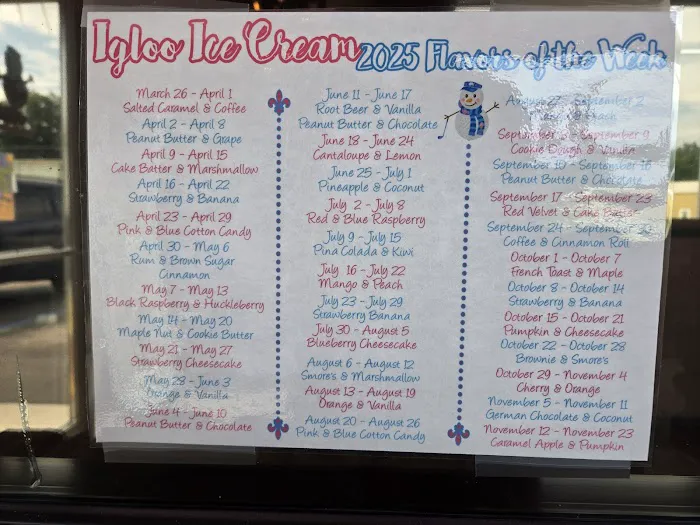 Igloo Ice Cream 2025 Flavors of the Week
March 26 - April 1
Salted Caramel & Coffee
April 2 - April 8
Peanut Butter & Grape
April 9 - April 15
Cake Batter & Marshmallow
April 16 - April 22
Strawberry & Banana
April 23 - April 29
Pink & Blue Cotton Candy
April 30 - May 6
Rum & Brown Sugar
Cinnamon
May 7 - May 13
Black Raspberry & Huckleberry
May 14 - May 20
Maple Nut & Cookie Butter
May 21 - May 27
Strawberry Cheesecake
May 28 - June 3
Orange & Vanilla
June 4 - June 10
Peanut Butter & Chocolate
June 11 - June 17
Root Beer & Vanilla
Peanut Butter & Chocolate
June 18 - June 24
Cantaloupe & Lemon
June 25 - July 1
Pineapple & Coconut
July 2 - July 8
Red & Blue Raspberry
July 9 - July 15
Pina Colada & Kiwi
July 16 - July 22
Mango & Peach
July 23 - July 29
Strawberry Banana
July 30 - August 5
Blueberry Cheesecake
August 6 - August 12
Smore's & Marshmallow
August 13 - August 19
Orange & Vanilla
August 20 - August 26
Pink & Blue Cotton Candy
August - September
&
September - September 9
Cookie Dough & Vanilla
September 10 - September 16
Peanut Butter & Chocolate
September 17 - September 23
Red Velvet & Cake Batter
September 24 - September 30
Coffee & Cinnamon Roll
October 1 - October 7
French Toast & Maple
October 8 - October 14
Strawberry & Banana
October 15 - October 21
Pumpkin & Cheesecake
October 22 - October 28
Brownie & Smore's
October 29 - November 4
Cherry & Orange
November 5 - November 11
German Chocolate & Coconut
November 12 - November 23
Caramel Apple & Pumpkin